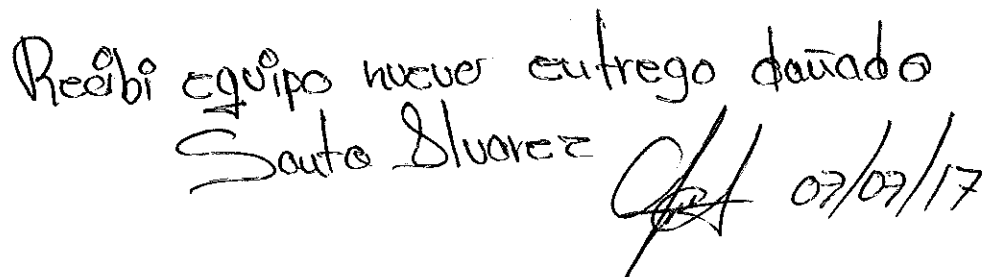 Recibi equipo nuevo entrego dañado
Santo Alvarez
07/07/17